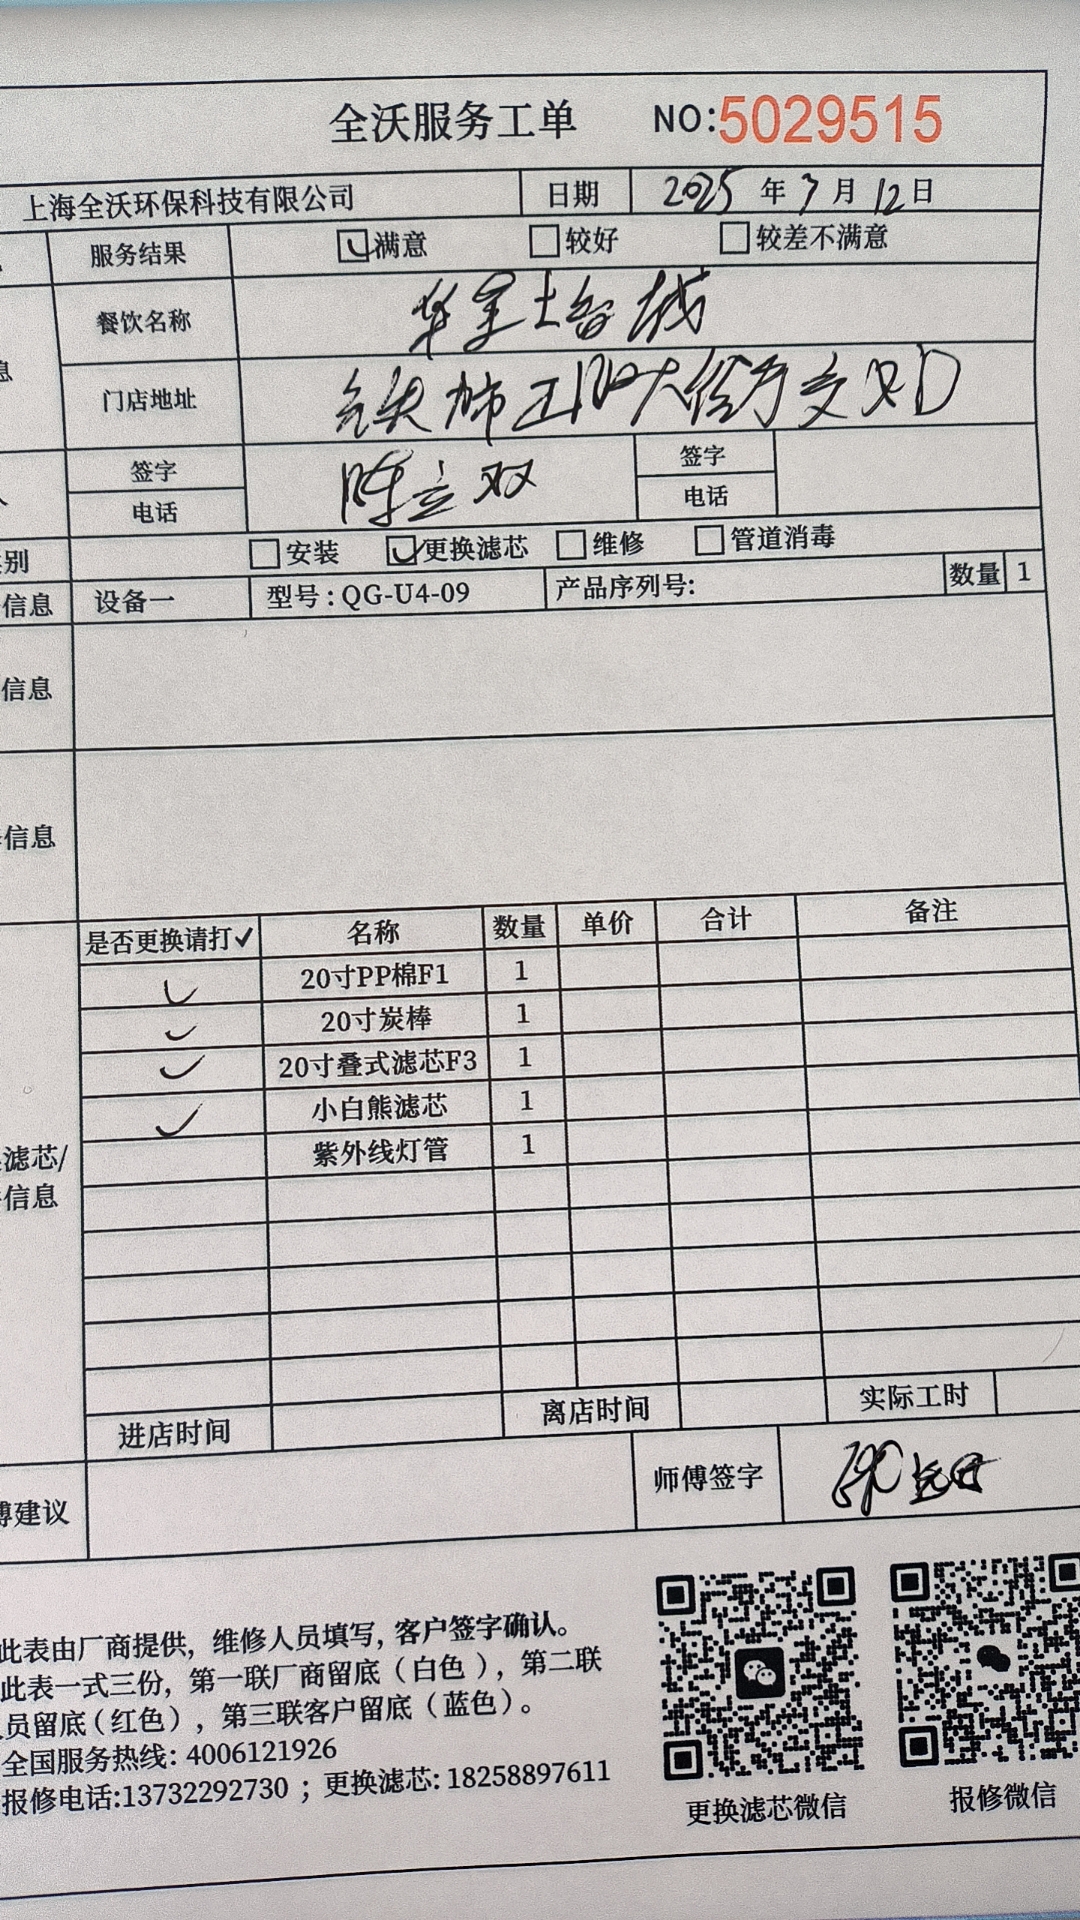 全沃服务工单 NO:5029515
上海全沃环保科技有限公司 日期 2025年7月12日
服务结果 满意 较好 较差不满意
餐饮名称
息
门店地址
签字 陈立双 签字
人
电话 电话
别 安装 更换滤芯 维修 管道消毒
信息 设备一 型号:QG-U4-09 产品序列号: 数量 1
信息
信息
是否更换请打✓ 名称 数量 单价 合计 备注
✓ 20寸PP棉F1 1
✓ 20寸炭棒 1
✓ 20寸叠式滤芯F3 1
✓ 小白熊滤芯 1
紫外线灯管 1
滤芯/
信息
进店时间 离店时间 实际工时
傅建议 师傅签字
此表由厂商提供, 维修人员填写, 客户签字确认。
此表一式三份, 第一联厂商留底(白色), 第二联
人员留底(红色), 第三联客户留底(蓝色)。
全国服务热线: 4006121926
报修电话:13732292730 ; 更换滤芯: 18258897611
更换滤芯微信 报修微信